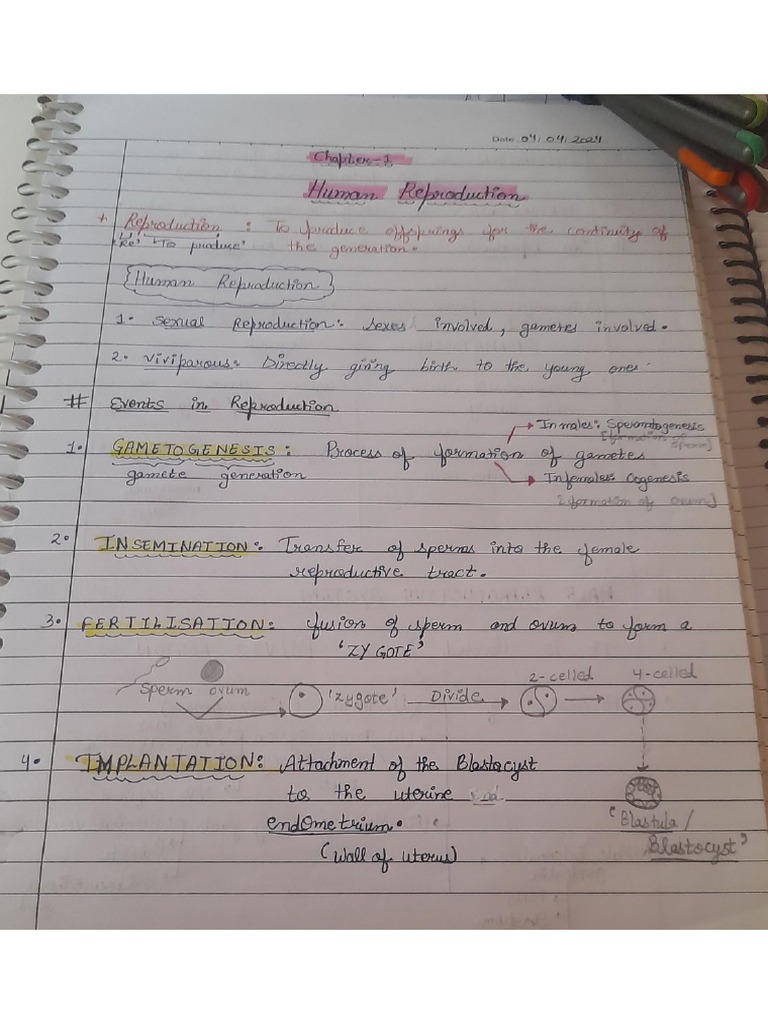 Date 04/04/2024
Chapter-1
Human Reproduction
* Reproduction : To produce offsprings for the continuity of
'Re' 'To produce' the generation.
Human Reproduction
1. Sexual Reproduction: Sexes involved, gametes involved.
2. Viviparous: Directly giving birth to the young ones.
# Events in Reproduction
In males: Spermatogenesis
[formation of sperm]
1. GAMETOGENESIS: Process of formation of gametes
gamete generation
In females: Oogenesis
[formation of ovum]
2. INSEMINATION: Transfer of sperms into the female
reproductive tract.
3. FERTILISATION: fusion of sperm and ovum to form a
'ZYGOTE'
2-celled 4-celled
Sperm ovum 'Zygote' Divide
4. IMPLANTATION: Attachment of the Blastocyst
to the uterine
endOmetrium.
(Wall of uterus)
'Blastula/
Blastocyst'